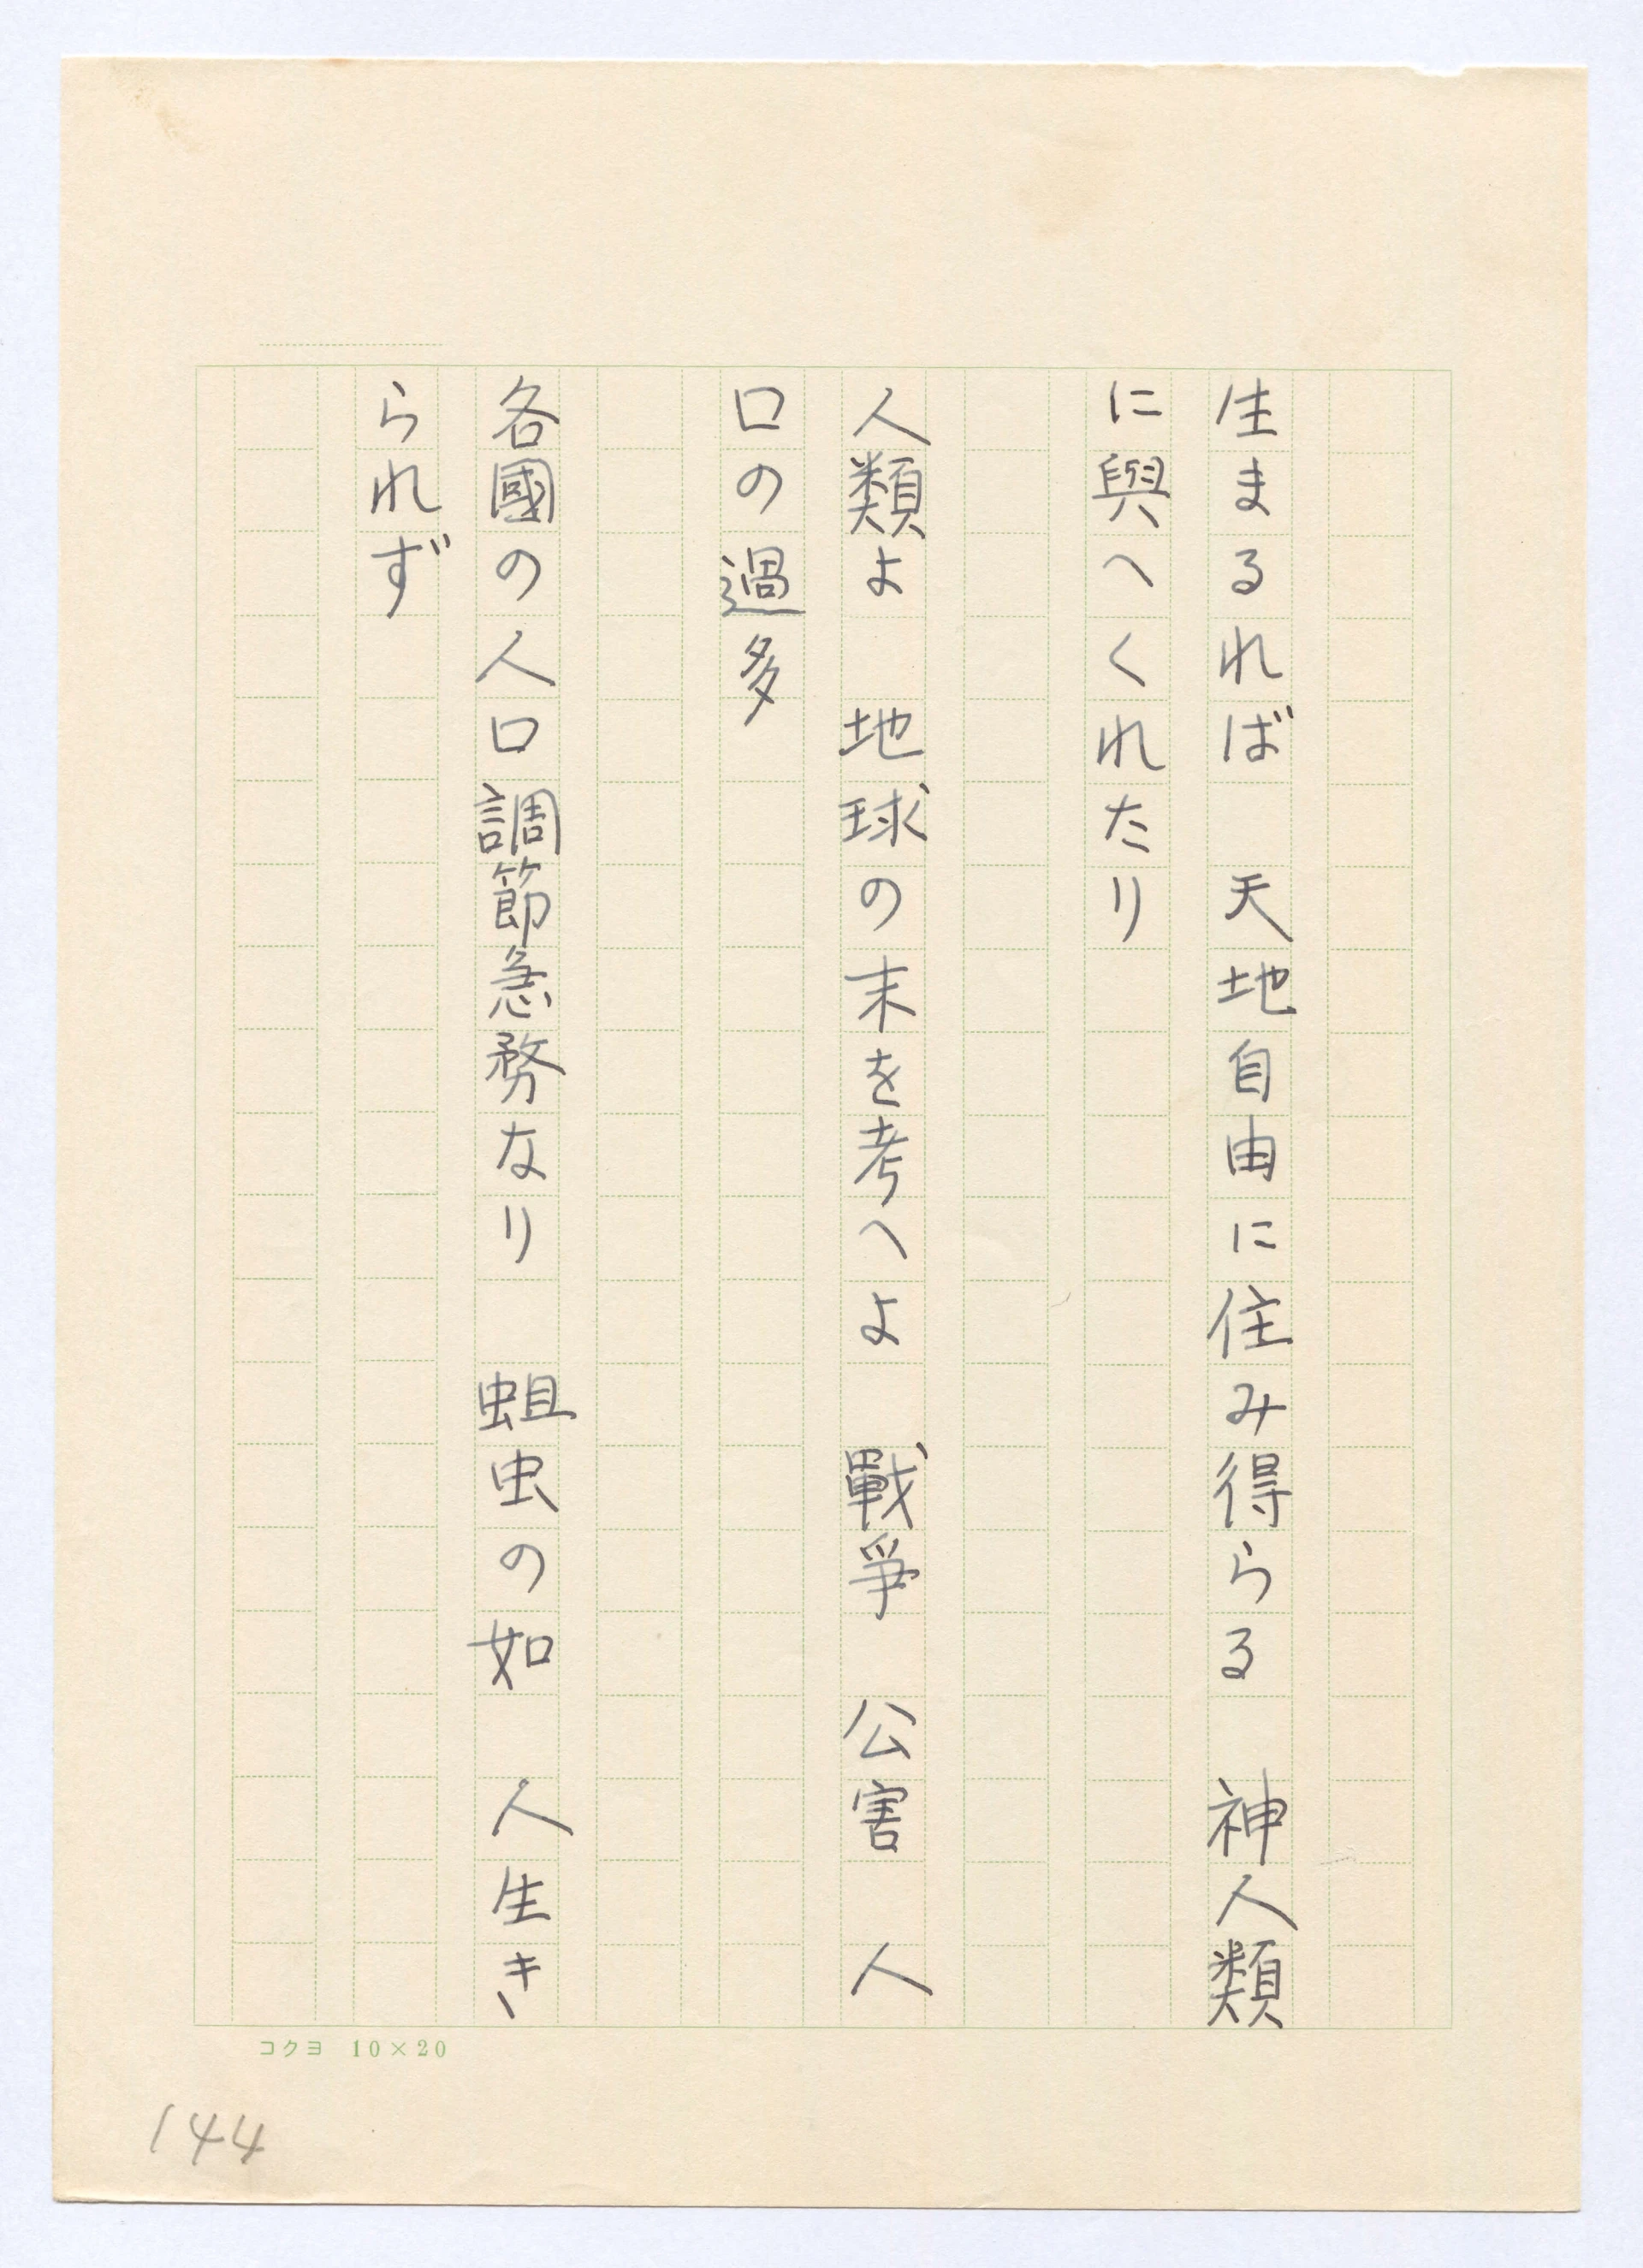 生まるれば　天地自由に住み得らる　神人類
に與へくれたり
人類よ　地球の末を考へよ　戰爭　公害　人
口の過多
各國の人口調節急務なり　蛆虫の如　人生き
られず
コクヨ　10×20
144